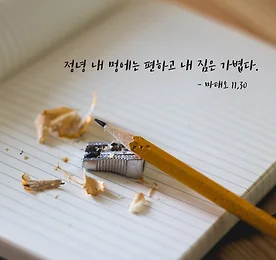 정녕 내 멍에는 편하고 내 짐은 가볍다.
- 마태오 11,30